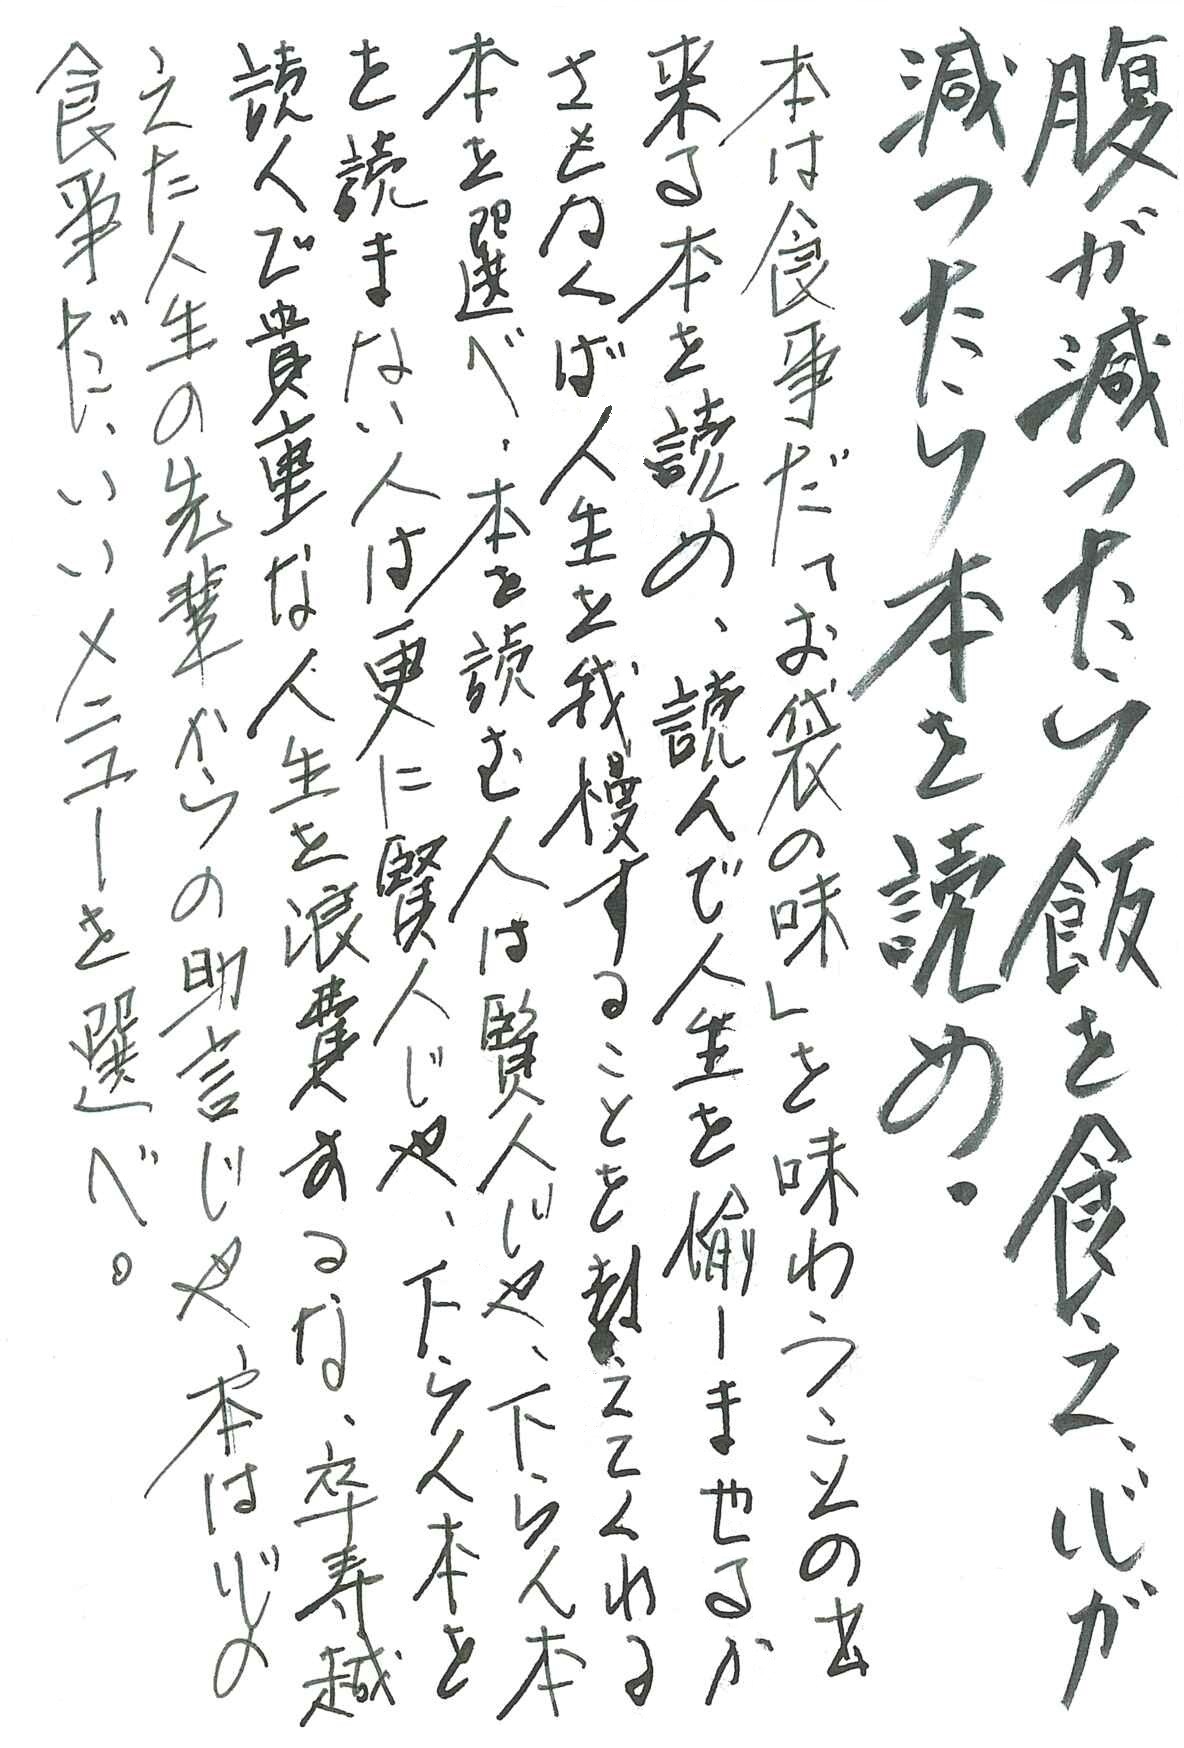 腹が減ったら飯を食え、心が
減ったら本を読め。
本は食事だ「お袋の味」を味わうことの出
来る本を読め、読んで人生を愉しませるか
さもなくば人生を我慢することを教えてくれる
本を選べ、本を読む人は賢人じゃ、下らん本
を読まない人は更に賢人じゃ、下らん本を
読んで貴重な人生を浪費するな、卒寿越
えた人生の先輩からの助言じゃ、本は心の
食事だ、いいメニューを選べ。